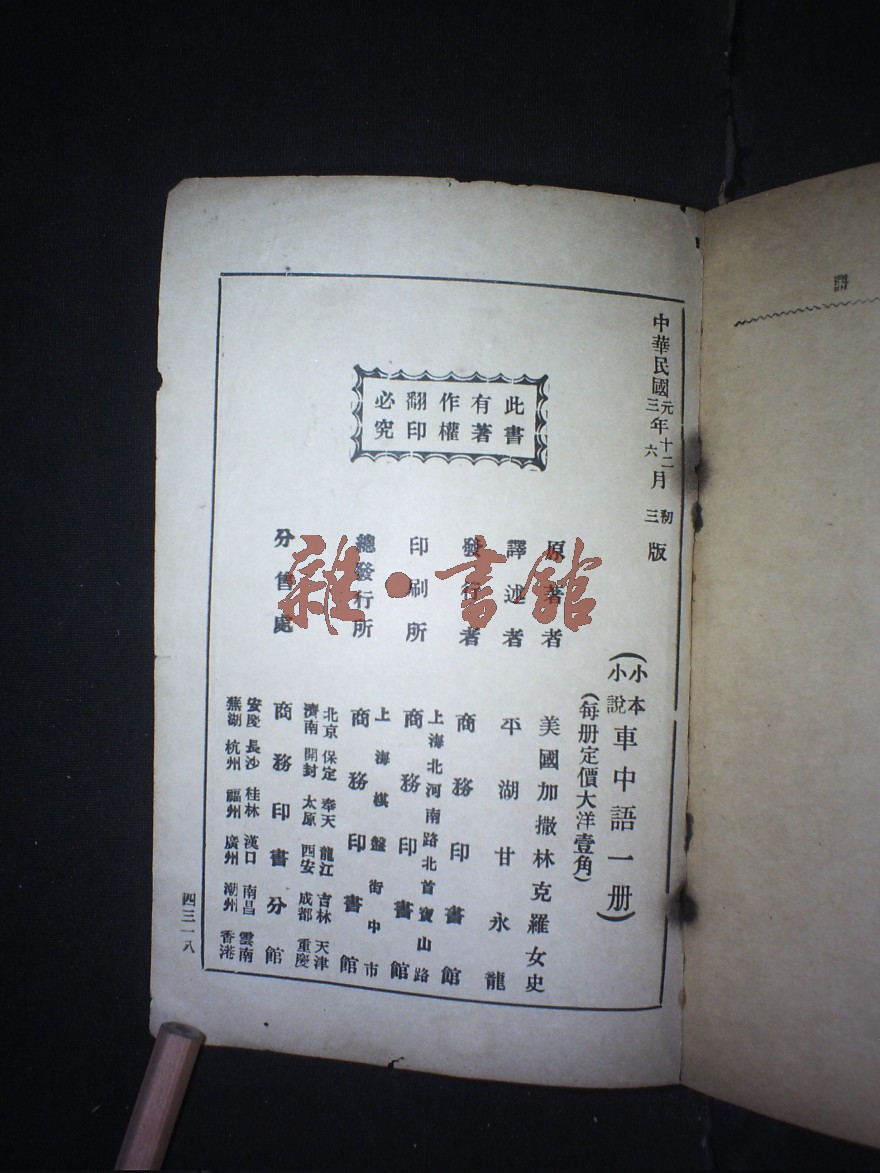 中華民國元年十二月初版
三年六月三版
(小本小說車中語一册)
(每册定價大洋壹角)
此書有著作權翻印必究
原著者 美國加撒林克羅女史
譯述者 平湖甘永龍
發行者 商務印書館
印刷所 上海北河南路北首寶山路 商務印書館
總發行所 上海棋盤街中市 商務印書館
分售處 北京 保定 奉天 龍江 吉林 天津
濟南 開封 太原 西安 成都 重慶
商務印書分館
安慶 長沙 桂林 漢口 南昌 雲南
蕪湖 杭州 福州 廣州 潮州 香港
四三一八
雜·書館
語